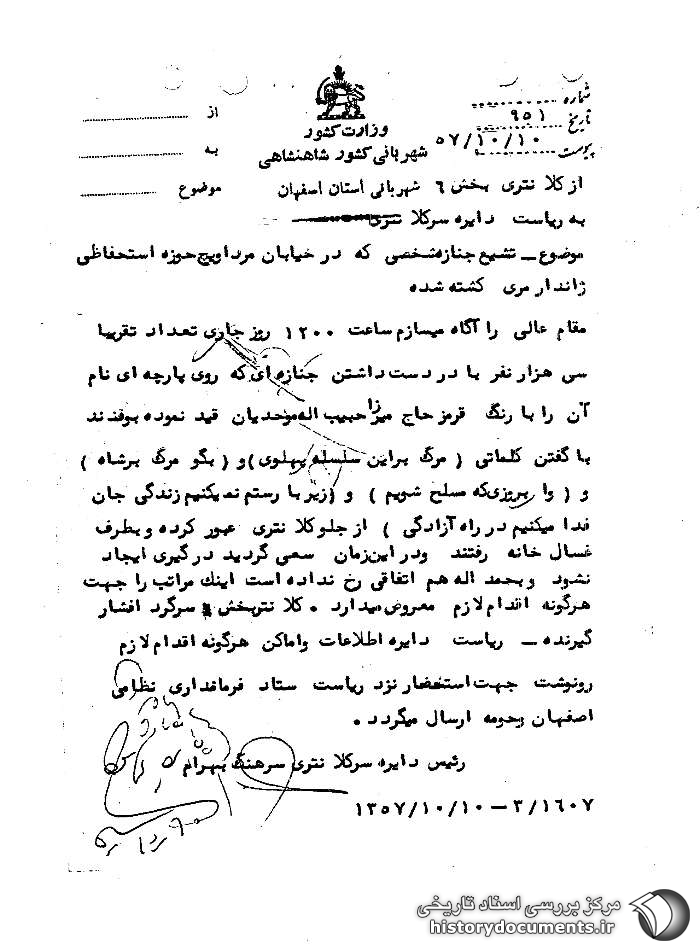 شماره
از
تاریخ ۹۵۱
وزارت کشور
پیوست ۵۷/۱۰/۱۰
به
شهربانی کشور شاهنشاهی
موضوع
از کلانتری بخش ۶ شهربانی استان اصفهان
به ریاست دایره سرکلانتری
موضوع ــ تشیع جنازه شخصی که در خیابان مرداویج حوزه استحفاظی
ژاندارمری کشته شده
مقام عالی را آگاه میسازم ساعت ۱۲۰۰ روز جاری تعداد تقریبا
سی هزار نفر با در دست داشتن جنازه ای که روی پارچه ای نام
آن را با رنگ قرمز حاج میرزا حبیب اله موحدیان قید نموده بودند
با گفتن کلماتی ( مرگ براین سلسله پهلوی ) و ( بگو مرگ برشاه )
و ( وا بروزی که مسلح شویم ) و ( زیر بار ستم نمیکنیم زندگی جان
فدا میکنیم در راه آزادگی ) از جلو کلانتری عبور کرده و بطرف
غسال خانه رفتند ودر این زمان سعی گردید درگیری ایجاد
نشود و بحمد اله هم اتفاقی رخ نداده است اینک مراتب را جهت
هرگونه اقدام لازم معروض میدارد . کلانتر بخش ۶ سرگرد افشار
گیرنده ــ ریاست دایره اطلاعات واماکن هرگونه اقدام لازم
رونوشت جهت استحضار نزد ریاست ستاد فرمانداری نظامی
اصفهان وحومه ارسال میگردد .
رئیس دایره سرکلانتری سرهنگ بهرام
۱۳۵۷/۱۰/۱۰ – ۳/۱۶۰۷
مرکز بررسی اسناد تاریخی
historydocuments.ir